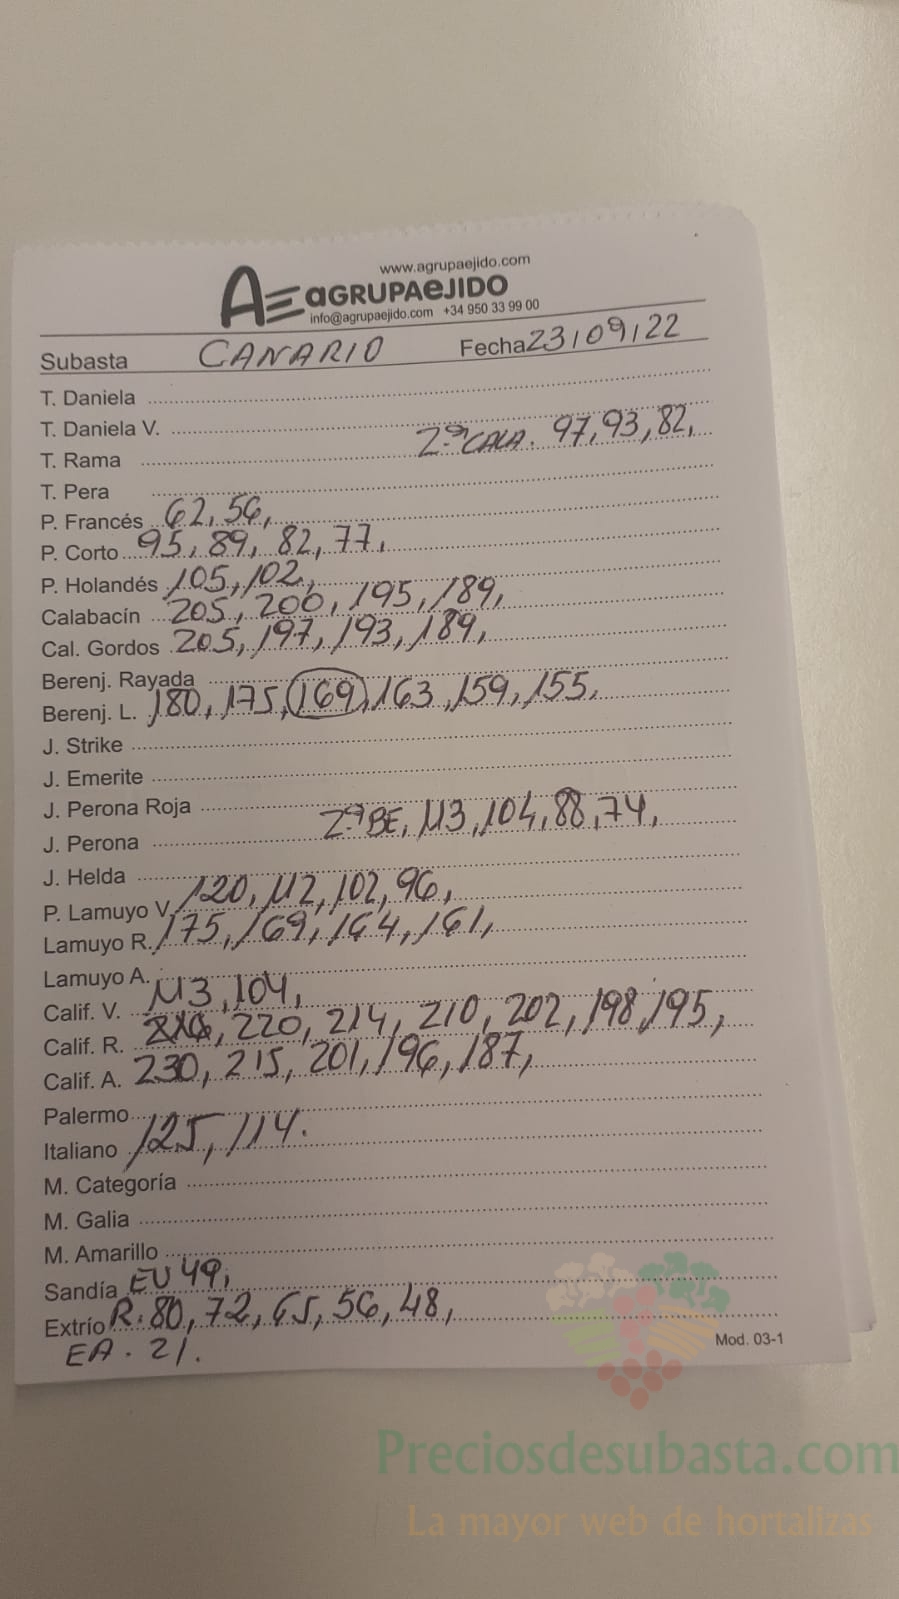 www.agrupaejido.com
AGRUPAEJIDO
info@agrupaejido.com +34 950 33 99 00
Subasta CANARIO Fecha 23/09/22
T. Daniela
T. Daniela V.
T. Rama 2ª CALA. 97, 93, 82,
T. Pera
P. Francés 62, 56,
P. Corto 95, 89, 82, 77,
P. Holandés 105, 102,
Calabacín 205, 200, 195, 189,
Cal. Gordos 205, 197, 193, 189,
Berenj. Rayada
Berenj. L. 180, 175, 169, 163, 159, 155,
J. Strike
J. Emerite
J. Perona Roja
J. Perona 2ª BE, 113, 104, 88, 74,
J. Helda
P. Lamuyo V. 120, 112, 102, 96,
Lamuyo R. 175, 169, 164, 161,
Lamuyo A.
Calif. V. 113, 104,
Calif. R. 220, 214, 210, 202, 198, 195,
Calif. A. 230, 215, 201, 196, 187,
Palermo
Italiano 125, 114.
M. Categoría
M. Galia
M. Amarillo
Sandía EU 49,
Extrío R. 80, 72, 65, 56, 48,
EA. 21.
Mod. 03-1
Preciosdesubasta.com
La mayor web de hortalizas